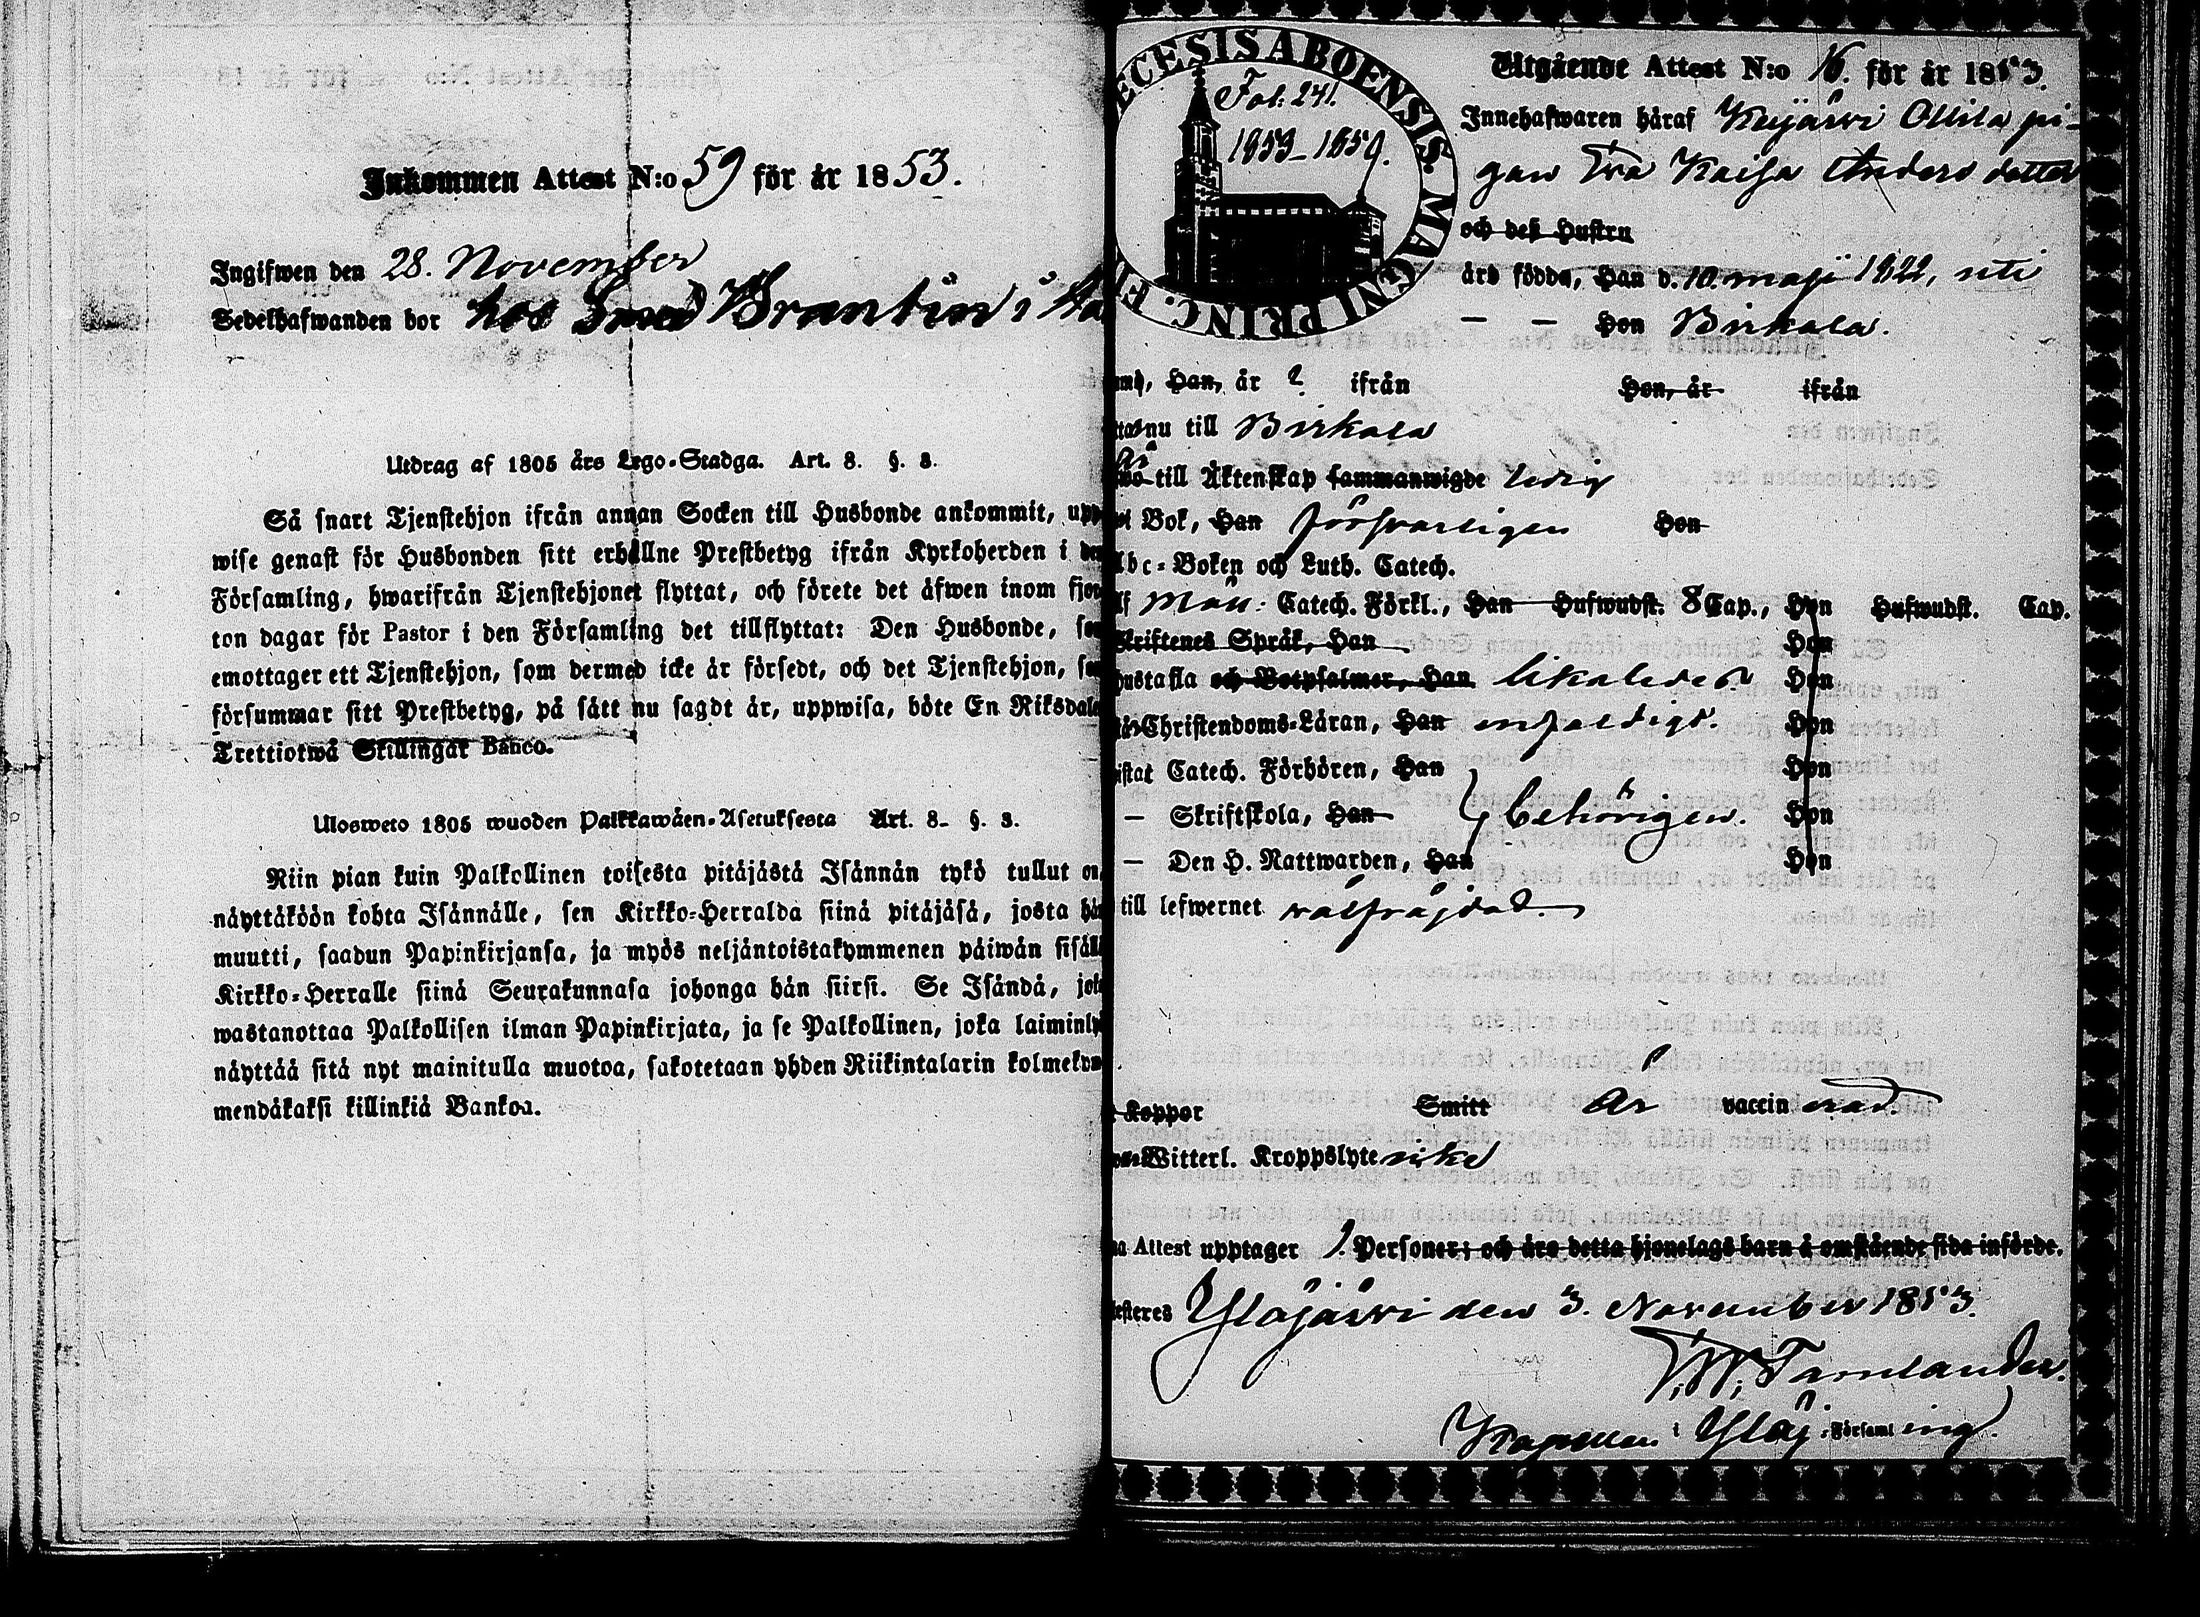 Inkommen Attest N:o 59 för år 1853.
Ingifwen den 28. November
Sedelhafwanden bor hos Smed Brantin i
Utdrag af 1805 års Lego-Stadga. Art. 8. §. 3.
Så snart Tjenstehjon ifrån annan Socken till Husbonde ankommit, upp
wise genast för Husbonden sitt erhållne Prestbetyg ifrån Kyrkoherden i den
Församling, hwarifrån Tjenstehjonet flyttat, och förete det äfwen inom fjor
ton dagar för Pastor i den Församling det tillflyttat: Den Husbonde, som
emottager ett Tjenstehjon, som dermed icke är försedt, och det Tjenstehjon, som
försummar sitt Prestbetyg, på sätt nu sagdt är, uppwisa, böte En Riksdaler
Trettiotwå Skillingar Banco.
Ulosweto 1805 wuoden Palkkawäen-Asetuksesta Art. 8. §. 3.
Niin pian kuin Palkollinen toisesta pitäjästä Isännän tykö tullut on,
näyttäköön kohta Isännälle, sen Kirkko-Herralda siinä pitäjäsä, josta hän
muutti, saadun Papinkirjansa, ja myös neljäntoistakymmenen päiwän sisällä
Kirkko-Herralle siinä Seurakunnasa johonga hän siirsi. Se Isändä, joka
wastanottaa Palkollisen ilman Papinkirjata, ja se Palkollinen, joka laiminly
näyttää sitä nyt mainitulla muotoa, sakotetaan yhden Riikintalarin kolmekym
mendäkaksi killinkiä Bankoa.
ECESIS ABOENSIS. MAGNI PRINC. F
Fol: 241.
1853–1859.
Utgående Attest N:o 16. för år 1853.
Innehafwaren häraf Keijärvi Ollila pi-
gan Eva Kaisa Andersdotter
och deß Hustru
äro födde, Han d. 10. maji 1822, uti
— — Hon Birkala.
Han, år ? ifrån Hon, år ifrån
nu till Birkala
Är till Äktenskap sammanwigde ledig
i Bok, Han försvarligen Hon
Abc-Boken och Luth. Catech.
af Catech. Förkl., Han Hufwudst. 8 Cap., Hon Hufwudst. Cap.
Skriftenes Språk, Han Hon
Hustafla och Botpsalmer, Han likaledes. Hon
Christendoms-Läran, Han enfaldigt. Hon
istat Catech. Förhören, Han Hon
— Skriftskola, Han behörigen. Hon
— Den H. Nattwarden, Han Hon
till lefwernet välfräjdad.
Koppor Smitt är vaccinerad.
Witterl. Kroppslyte icke
na Attest upptager 1. Personer; och äro detta hjonelags barn å omstående sida införde.
esteres Ylöjärvi den 3. November 1853.
Tamlander.
Kapellan i Ylöj. Församling.